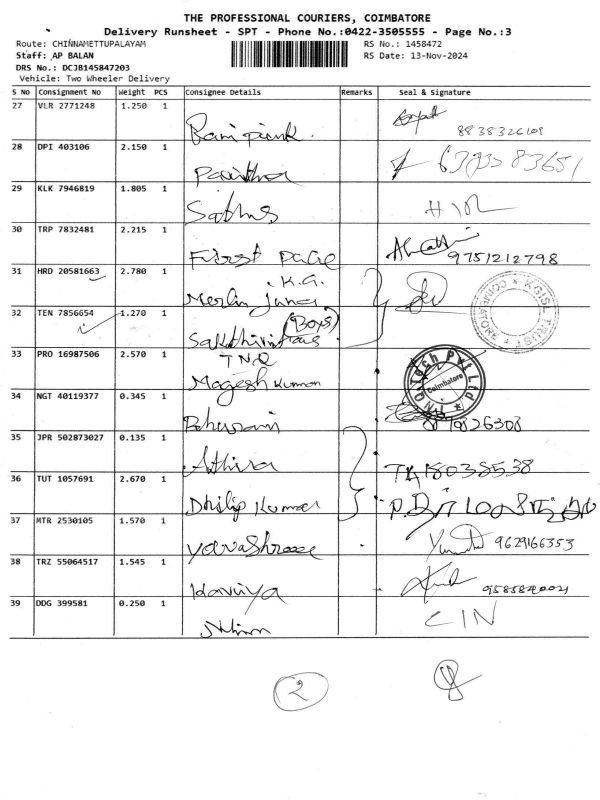 THE PROFESSIONAL COURIERS, COIMBATORE
Delivery Runsheet - SPT - Phone No.:0422-3505555 - Page No.:3
Route: CHINNAMETTUPALAYAM RS No.: 1458472
Staff: AP BALAN RS Date: 13-Nov-2024
DRS No.: DCJB145847203
Vehicle: Two Wheeler Delivery
S No Consignment No Weight PCS Consignee Details Remarks Seal & Signature
27 VLR 2771248 1.250 1
28 DPI 403106 2.150 1 Pavithra
29 KLK 7946819 1.805 1
30 TRP 7832481 2.215 1 First Page 9751212798
31 HRD 20581663 2.780 1 K.G.
Merlin
32 TEN 7856654 1.270 1 (Boys)
33 PRO 16987506 2.570 1 TNQ
Magesh Kumar
34 NGT 40119377 0.345 1
35 JPR 502873027 0.135 1 Athira
36 TUT 1057691 2.670 1 Dhilip Kumar
37 MTR 2530105 1.570 1 9629166353
38 TRZ 55064517 1.545 1 Kaviya
39 DDG 399581 0.250 1 CIN
KGISL TRUST
TNQ Tech Pvt Ltd
Coimbatore
2